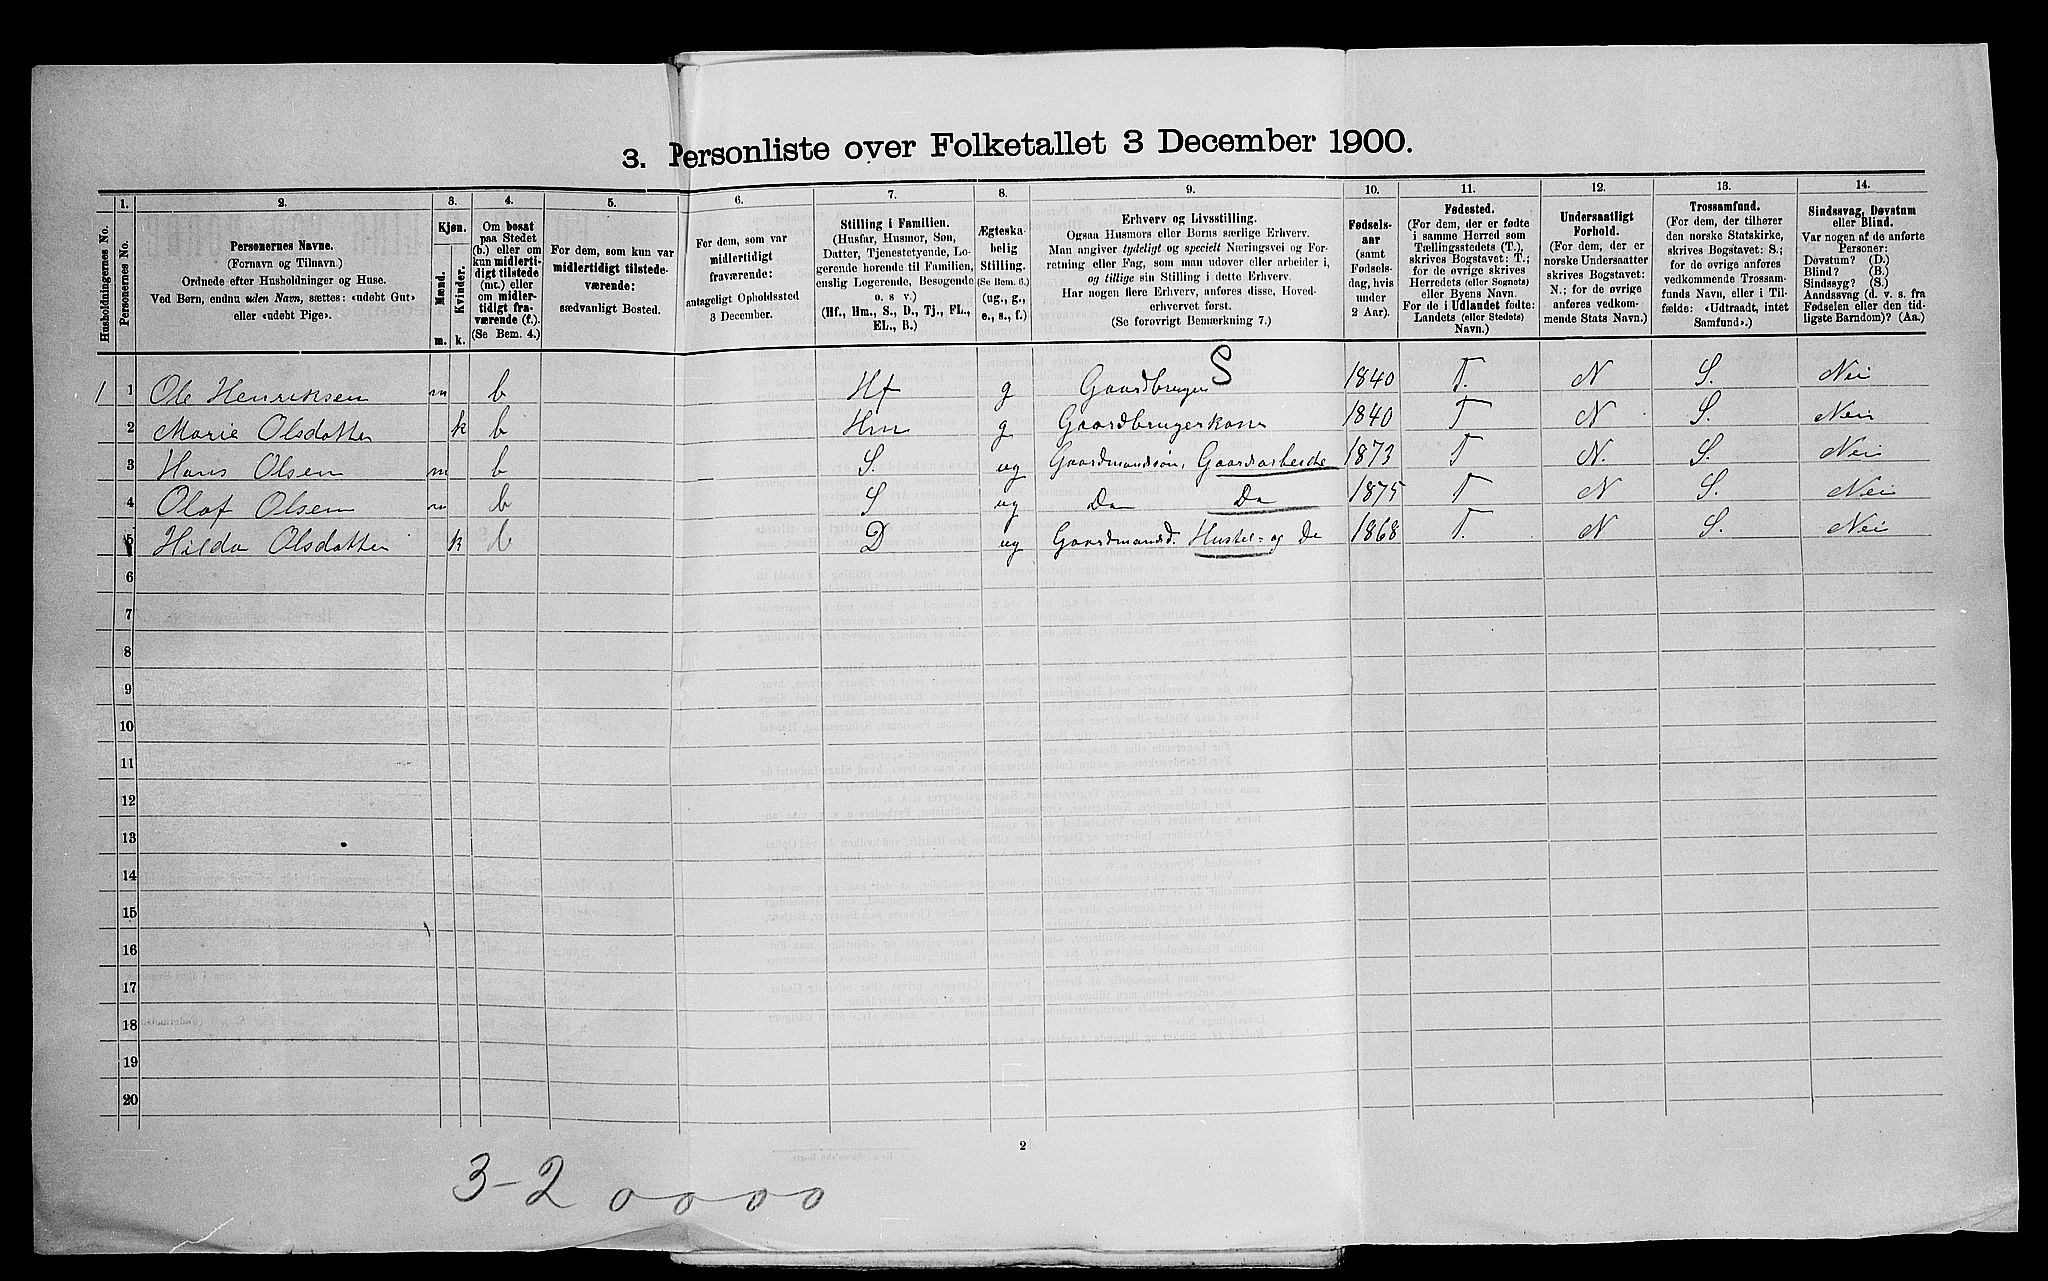 3. Personliste over Folketallet 3 December 1900.
1. 2. 3. 4. 5. 6. 7. 8. 9. 10. 11. 12. 13. 14.
Husholdningernes No.
Personernes No.
Personernes Navne.
(Fornavn og Tilnavn.)
Ordnede efter Husholdninger og Huse.
Ved Børn, endnu uden Navn, sættes: «udøbt Gut»
eller «udøbt Pige».
Kjøn.
Mænd.
m.
Kvinder.
k.
Om bosat
paa Stedet
(b.) eller om
kun midlerti-
digt tilstede
(mt.) eller
om midler-
tidigt fra-
værende (f.).
(Se Bem. 4.)
For dem, som kun var
midlertidigt tilstede-
værende:
sædvanligt Bosted.
For dem, som var
midlertidigt
fraværende:
antageligt Opholdssted
3 December.
Stilling i Familien.
(Husfar, Husmor, Søn,
Datter, Tjenestetyende, Lo-
gerende hørende til Familien,
enslig Logerende, Besøgende
o. s v.)
(Hf., Hm., S., D., Tj., FL.,
EL., B.)
Ægteska-
belig
Stilling.
(Se Bem. 6.)
(ug., g.,
e., s., f.)
Erhverv og Livsstilling.
Ogsaa Husmors eller Børns særlige Erhverv.
Man angiver tydeligt og specielt Næringsvei og For-
retning eller Fag, som man udøver eller arbeider i,
og tillige sin Stilling i dette Erhverv.
Har nogen flere Erhverv, anføres disse, Hoved-
erhvervet først.
(Se forøvrigt Bemærkning 7.)
Fødsels-
aar
(samt
Fødsels-
dag, hvis
under
2 Aar).
Fødested.
(For dem, der er fødte
i samme Herred som
Tællingsstedets (T.),
skrives Bogstavet: T.;
for de øvrige skrives
Herredets (eller Sognets)
eller Byens Navn.
For de i Udlandet fødte:
Landets (eller Stedets)
Navn.)
Undersaatligt
Forhold.
(For dem, der er
norske Undersaatter
skrives Bogstavet:
N.; for de øvrige
anføres vedkom-
mende Stats Navn.)
Trossamfund.
(For dem, der tilhører
den norske Statskirke,
skrives Bogstavet: S.;
for de øvrige anføres
vedkommende Trossam-
funds Navn, eller i Til-
fælde: «Udtraadt, intet
Samfund».)
Sindssvag, Døvstum
eller Blind.
Var nogen af de anførte
Personer:
Døvstum? (D.)
Blind? (B.)
Sindssyg? (S.)
Aandssvag (d. v. s. fra
Fødselen eller den tid-
ligste Barndom)? (Aa.)
S
1 1 Ole Henriksen m b Hf g Gaardbruger 1840 T. N S. Nei
2 Marie Olsdatter k b Hm g Gaardbrugerkone 1840 T N S. Nei
3 Hans Olsen m b S. ug Gaardmandssøn, Gaardsarbeide 1873 T N. S. Nei
4 Olaf Olsen m b S ug Do Do 1875 T N S. Nei
5 Hilda Olsdatter k b D ug Gaardmandsd. Husstel- og Do 1868 T. N S. Nei
6
7
8
9
10
11
12
13
14
15
16
17
18
19
20
2
3-2 0000